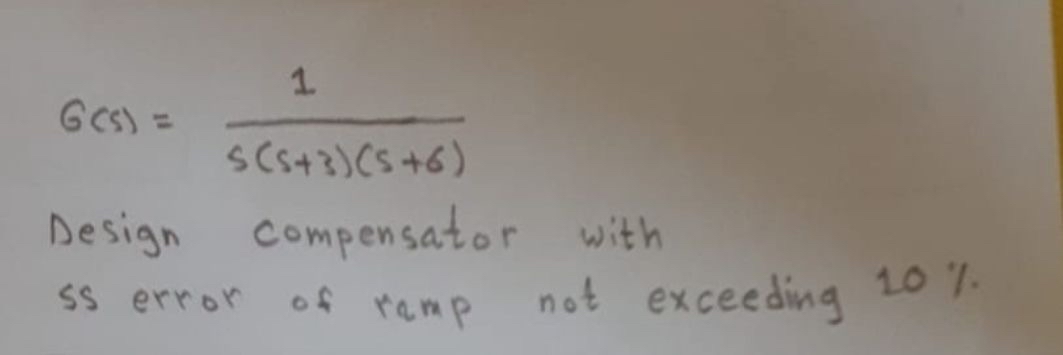 G(s) = 1 / s(s+3)(s+6)
Design compensator with
ss error of ramp not exceeding 10 %.